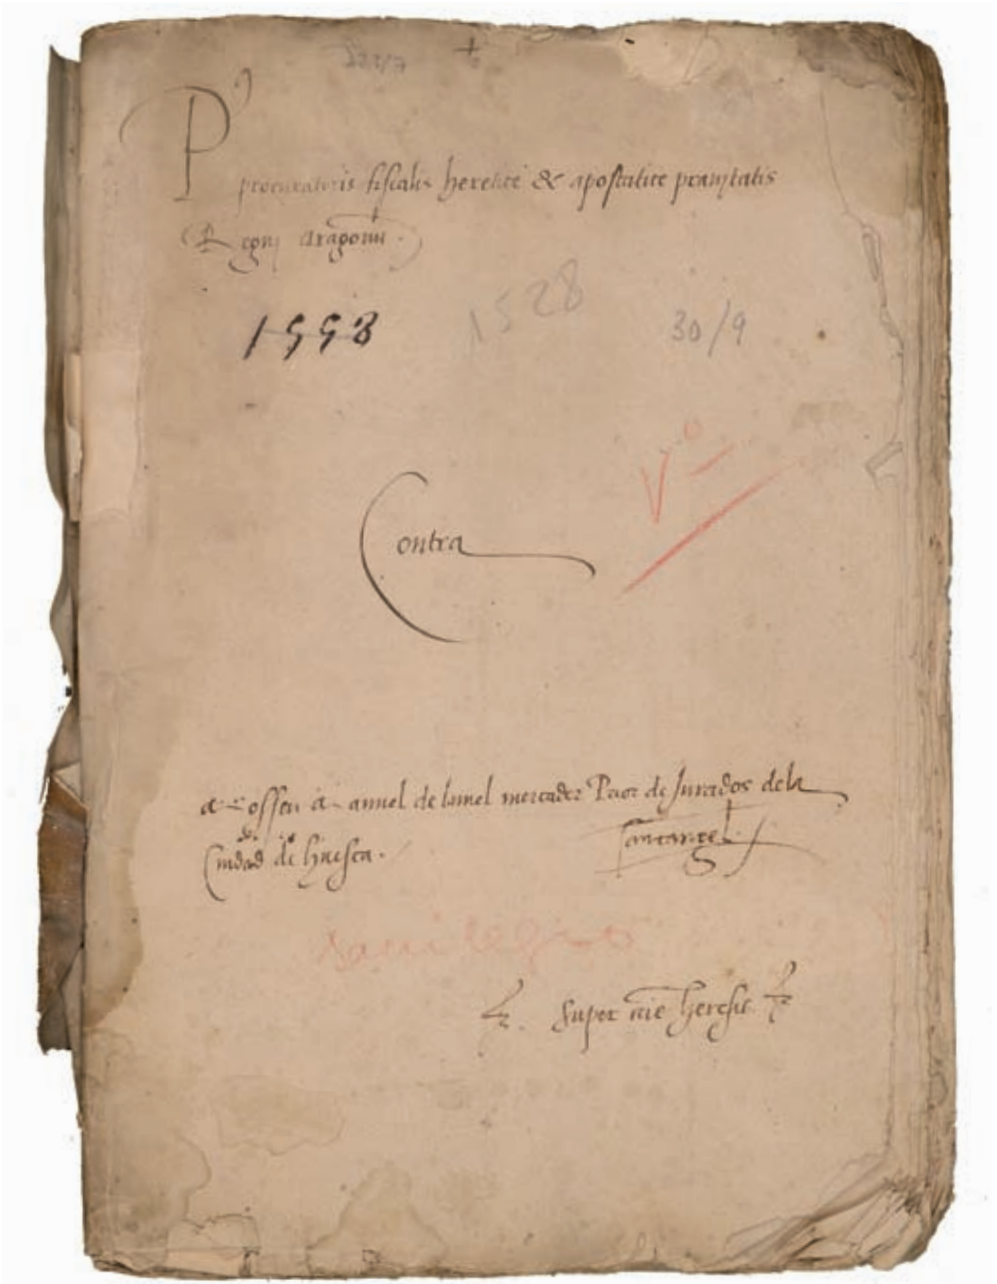 P
procuratoris fiscalis heretice & apostatice pravitatis
Regni Aragonu.
1558
1528
30/9
Vº
Contra
mossen manuel de lunel mercader Prior de Jurados dela
Ciudad de huesca.
sacrilegio
super crie heresis